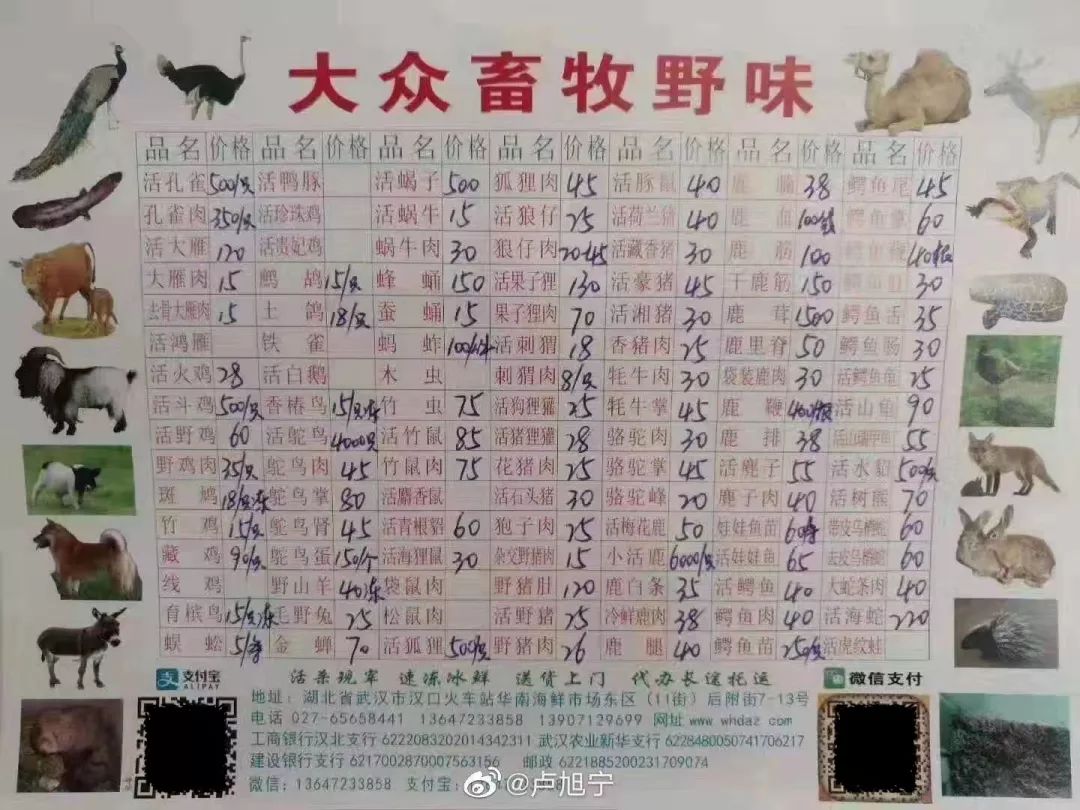 大众畜牧野味
品名 价格 品名 价格 品名 价格 品名 价格 品名 价格 品名 价格 品名 价格
活孔雀 500/只 活鸭豚 活蝎子 500 狐狸肉 45 活豚鼠 40 鹿 38 鳄鱼尾 45
孔雀肉 350/只 活珍珠鸡 活蜗牛 15 活狼仔 25 活荷兰猪 40 鹿血 鳄鱼掌 60
活大雁 120 活贵妃鸡 蜗牛肉 30 狼仔肉 活藏香猪 30 鹿筋 100 鳄鱼
大雁肉 15 鹧鸪 15/只 蜂蛹 150 活果子狸 130 活豪猪 45 干鹿筋 150 鳄鱼肚 30
去骨大雁肉 15 土鸽 18/只 蚕蛹 15 果子狸肉 70 活湘猪 30 鹿茸 1500 鳄鱼舌 35
活鸿雁 铁雀 蚂蚱 活刺猬 18 香猪肉 25 鹿里脊 50 鳄鱼肠 30
活火鸡 28 活白鹅 木虫 刺猬肉 8/只 牦牛肉 30 袋装鹿肉 30 活鳄鱼龟 25
活斗鸡 500/只 香椿鸟 15/只冻 竹虫 75 活狗狸獾 25 牦牛掌 45 鹿鞭 活山龟 90
活野鸡 60 活鸵鸟 4000只 活竹鼠 85 活猪狸獾 28 骆驼肉 30 鹿排 38 55
野鸡肉 35/只 鸵鸟肉 45 竹鼠肉 75 花猪肉 25 骆驼掌 45 活麂子 55 活水貂 500/只
斑鸠 18/只冻 鸵鸟掌 80 活麝香鼠 活石头猪 30 骆驼峰 20 麂子肉 40 活树熊 70
竹鸡 15/只 鸵鸟肾 45 活青根貂 60 狍子肉 25 活梅花鹿 50 娃娃鱼苗 带皮乌梢蛇 60
藏鸡 90/只 鸵鸟蛋 150/个 活海狸鼠 30 杂交野猪肉 15 小活鹿 6000/只 活娃娃鱼 65 去皮乌梢蛇 60
线鸡 野山羊 40冻 袋鼠肉 野猪肚 120 鹿白条 35 活鳄鱼 40 大蛇条肉 40
育槟鸟 15/只冻 毛野兔 25 松鼠肉 活野猪 25 冷鲜鹿肉 38 鳄鱼肉 40 活海蛇 220
蜈蚣 金蝉 70 活狐狸 500/只 野猪肉 26 鹿腿 40 鳄鱼苗 250/只 活虎纹蛙
支付宝
ALIPAY
活杀现宰 速冻冰鲜 送货上门 代办长途托运
微信支付
地址：湖北省武汉市汉口火车站华南海鲜市场东区（11街）后附街7-13号
电话 027-65658441 13647233858 13907129699 网址 www whdaz com
工商银行汉北支行 6222083202014342311 武汉农业新华支行 6228480050741706217
建设银行支行 6217002870007563156 邮政 6221885200231709074
微信：13647233858 支付宝：
@卢旭宁